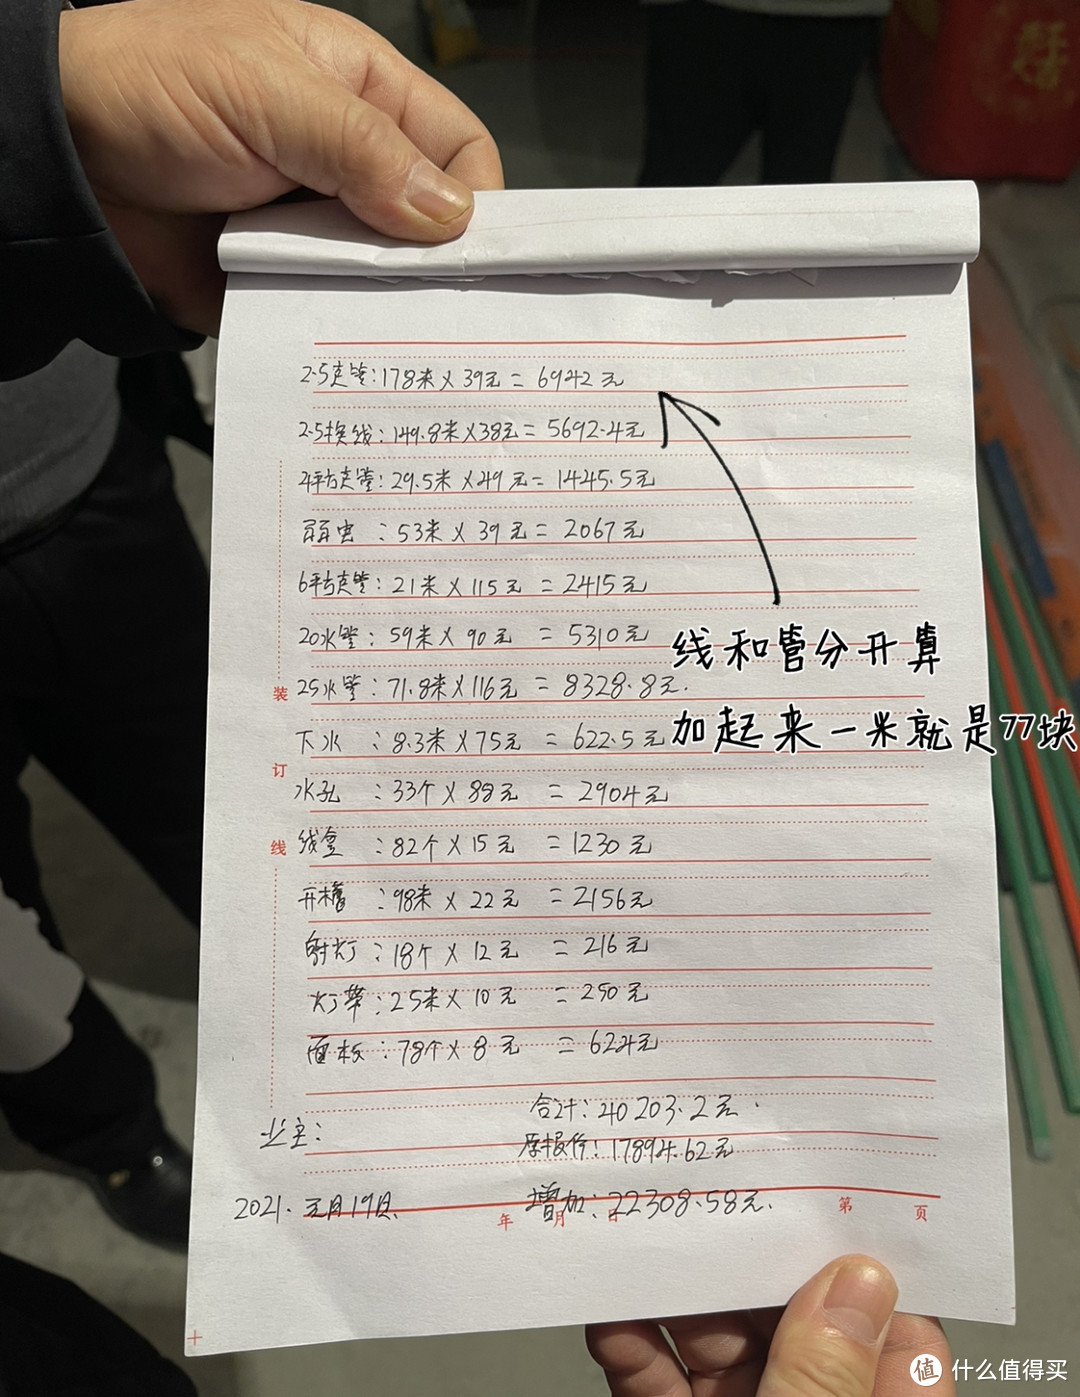 2.5走管:178米×39元=6942元
2.5换线:149.8米×38元=5692.4元
4平方走管:29.5米×49元=1445.5元
弱电:53米×39元=2067元
6平方走管:21米×115元=2415元
20水管:59米×90元=5310元
线和管分开算
25水管:71.8米×116元=8328.8元.
加起来一米就是77块
下水:8.3米×75元=622.5元
水孔:33个×88元=2904元
线盒:82个×15元=1230元
开槽:98米×22元=2156元
射灯:18个×12元=216元
灯带:25米×10元=250元
面板:78个×8元=624元
装订线
合计:40203.2元.
业主:
原报价:17894.62元
2021.元月19日.
增加:22308.58元.
年 月 日 第 页
值 什么值得买